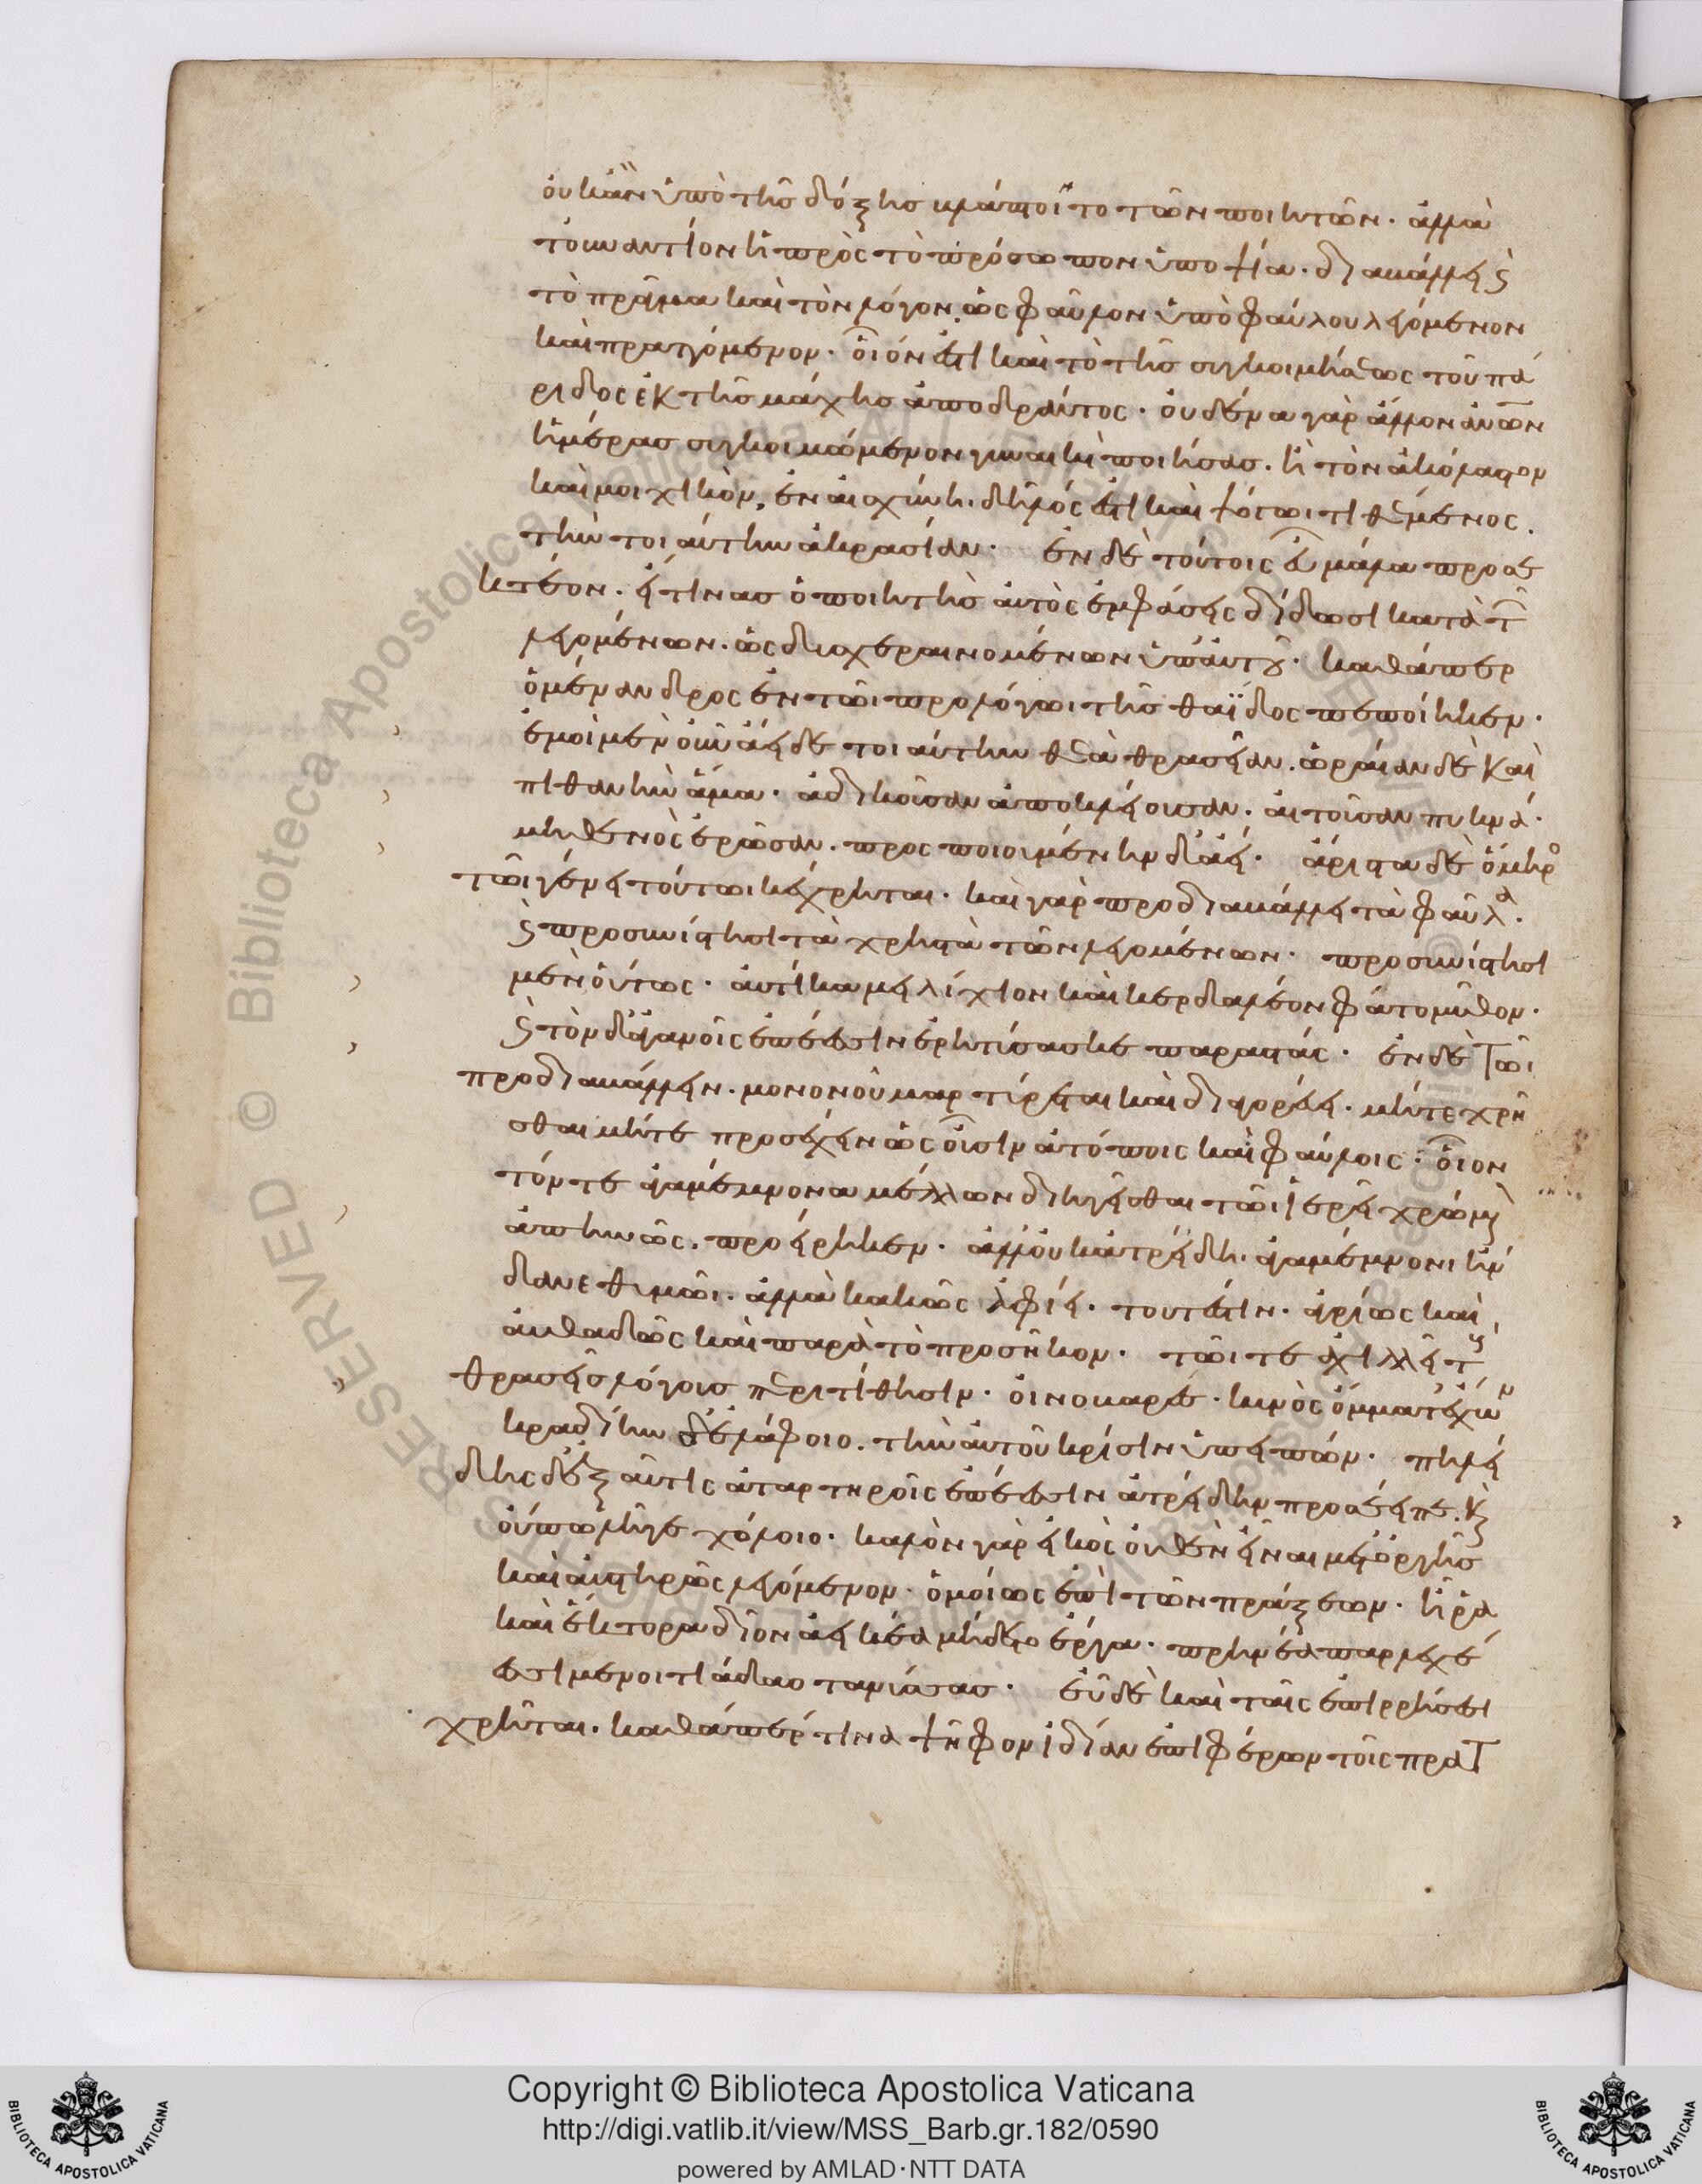 οὐκἂν ὑπὸ τῆς δόξης βλάπτοιτο τῶν ποιητῶν. ἀλλὰ
τοὐναντίον ἡ πρὸς τὸ πρόσωπον ὑποψία. διαβάλλει καὶ
τὸ πρᾶγμα καὶ τὸν λόγον. ὡς φαῦλον ὑπὸ φαύλου λεγόμενον
καὶ πραττόμενον. οἷόν ἐστι καὶ τὸ τῆς συγκοιμήσεως τοῦ πά
ριδος ἐκ τῆς μάχης ἀποδράντος. οὐδένα γὰρ ἄλλον ἀνθρώπων
ἡμέρας συγκοιμώμενον γυναικὶ ποιήσας. ἢ τὸν ἀκόλαστον
καὶ μοιχικόν, ἐν αἰσχύνηι δῆλός ἐστι καὶ ψόγωι τιθέμενος.
τὴν τοιαύτην ἀκρασίαν. ἐν δὲ τούτοις εὖ μάλα προσε
κτέον. εἴ τινας ὁ ποιητὴς αὐτὸς ἐμφάσεις δίδωσι κατὰ τῶν
λεγομένων. ὡς δυσχεραινομένων ὑπ' αὐτοῦ. καθάπερ
ὁ μένανδρος ἐν τῶι προλόγωι τῆς θαΐδος πεποίηκεν.
ἐμοὶ μὲν οὖν ἄειδε τοιαύτην θεὰ θρασεῖαν. ὡραίαν δὲ καὶ
πιθανὴν ἅμα. ἀδικοῦσαν ἀποκλείουσαν. αἰτοῦσαν πυκνά.
μηθενὸς ἐρῶσαν. προσποιουμένην δ' ἀεί. ἄριστα δὲ ὅμηρος
τῶι γένει τούτωι κέχρηται. καὶ γὰρ προδιαβάλλει τὰ φαῦλα.
καὶ προσυνίστησι τὰ χρηστὰ τῶν λεγομένων. προσυνίστησι
μὲν οὕτως. αὐτίκα μειλίχιον καὶ κερδαλέον φάτο μῦθον.
καὶ τὸν δ' ἀγανοῖς ἐπέεσσιν ἐρητύσασκε παραστάς. ἐν δὲ τῶι
προδιαβάλλειν. μονονοὺ μαρτύρεται καὶ διαγορεύει. μήτε χρῆ
σθαι μήτε προσέχειν ὡς οὖσιν ἀτόποις καὶ φαύλοις. οἷον
τόν τε ἀγαμέμνονα μέλλων διηγεῖσθαι τῶι ἱερεῖ χρώμενον
ἀπηνῶς. προείρηκεν. ἀλλ' οὐκ ἀτρείδηι. ἀγαμέμνονι ἥν
δανε θυμῶι. ἀλλὰ κακῶς ἀφίει. τουτέστιν. ἀγρίως καὶ
αὐθαδῶς καὶ παρὰ τὸ προσῆκον. τῶι τε ἀχιλλεῖ τοὺς
θρασεῖς λόγους περιτίθησιν. οἰνοβαρές. κυνὸς ὄμματ' ἔχων
κραδίην δ' ἐλάφοιο. τὴν αὐτοῦ κρίσιν ὑπειπών. πηλεί
δης δ' ἐξ αὖτις ἀταρτηροῖς ἐπέεσσιν ἀτρείδην προσέειπε. καὶ
οὔπω λῆγε χόλοιο. καλὸν γὰρ εἰκὸς οὐθὲν εἶναι μετ' ὀργῆς
καὶ αὐστηρῶς λεγόμενον. ὁμοίως ἐπὶ τῶν πράξεων. ἦ ῥα
καὶ ἕκτορα δῖον ἀεικέα μήδετο ἔργα. πρηνέα παρ λεχέ
εσσι μενοιτιάδαο τανύσας. εὖ δὲ καὶ ταῖς ἐπιρρήσεσι
χρῆται. καθάπερ τινὰ ψῆφον ἰδίαν ἐπιφέρων τοῖς πραττ